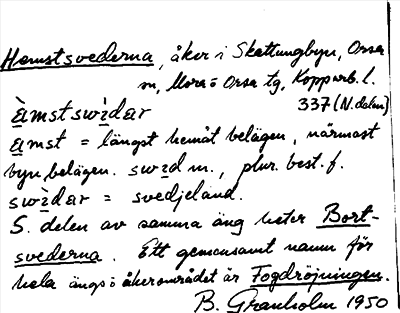 Hemstsvederna, åker i Skattungbyn, Orsa
sn, Mora o Orsa tg, Kopparb. l.
337 (N. delen)
àmstswìdar
amst = längst hemåt belägen, närmast
byn belägen. swìd m., plur. best. f.
swìdar = svedjeland.
S. delen av samma äng heter Bort-
svederna. Ett gemensamt namn för
hela ängs o åkerområdet är Fogdröjningen.
B. Granholm 1950